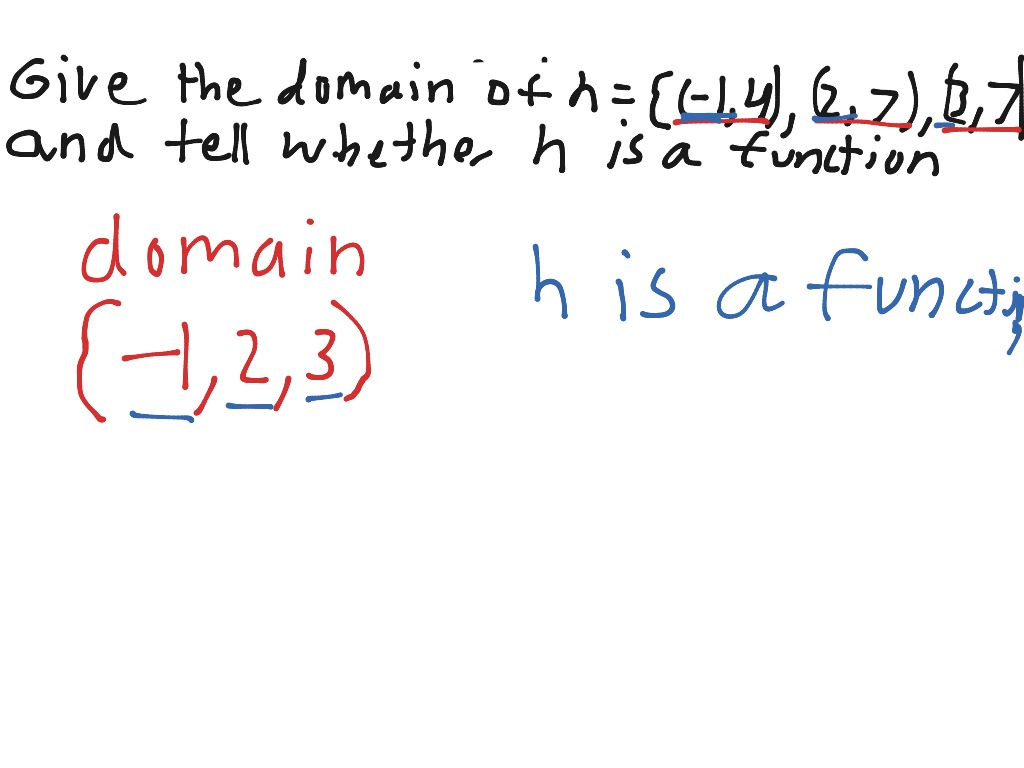 Give the domain of h = {(-1,4), (2,7), (3,7
and tell whether h is a function
domain
{-1,2,3)
h is a functi